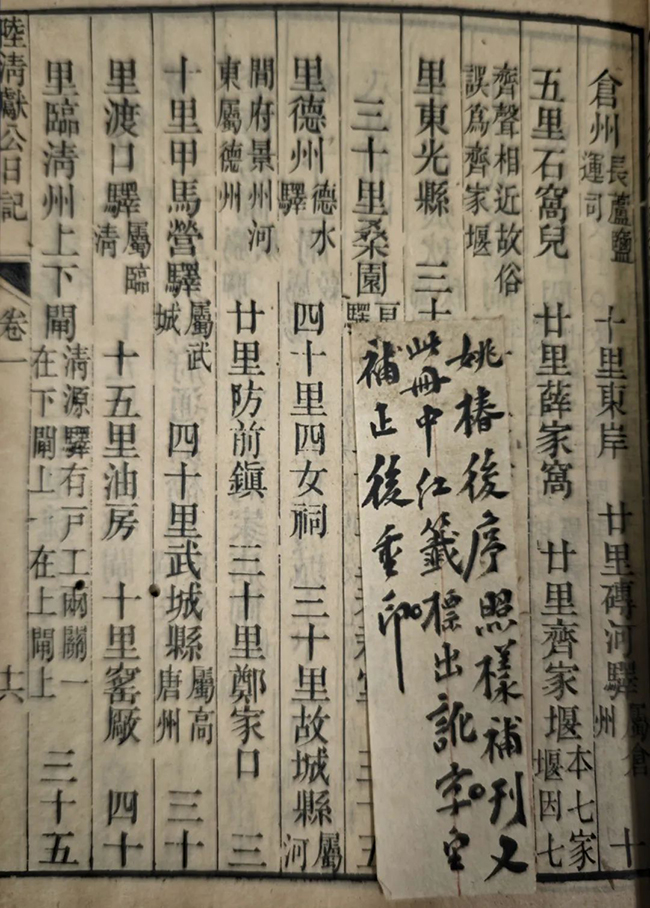 倉州長蘆鹽運司 十里東岸 廿里磚河驛屬倉州 十
五里石窩兒 廿里薛家窩 廿里齊家堰本七家堰因七
齊聲相近故俗誤為齊家堰
里東光縣 三十
三十里桑園
里德州德水驛 四十里四女祠 三十里故城縣屬河
間府景州河東屬德州 廿里防前鎮 三十里鄭家口 三
十里甲馬營驛屬武城 四十里武城縣屬高唐州 三十
里渡口驛屬臨清 十五里油房 十里窰厰 四十
里臨清州上下閘清源驛有戶工兩關一在下閘上一在上閘上 三十五
陸清獻公日記 卷一 十六
姚椿後序照樣補刊又
此冊中紅籤標出訛字宜
補正後重印